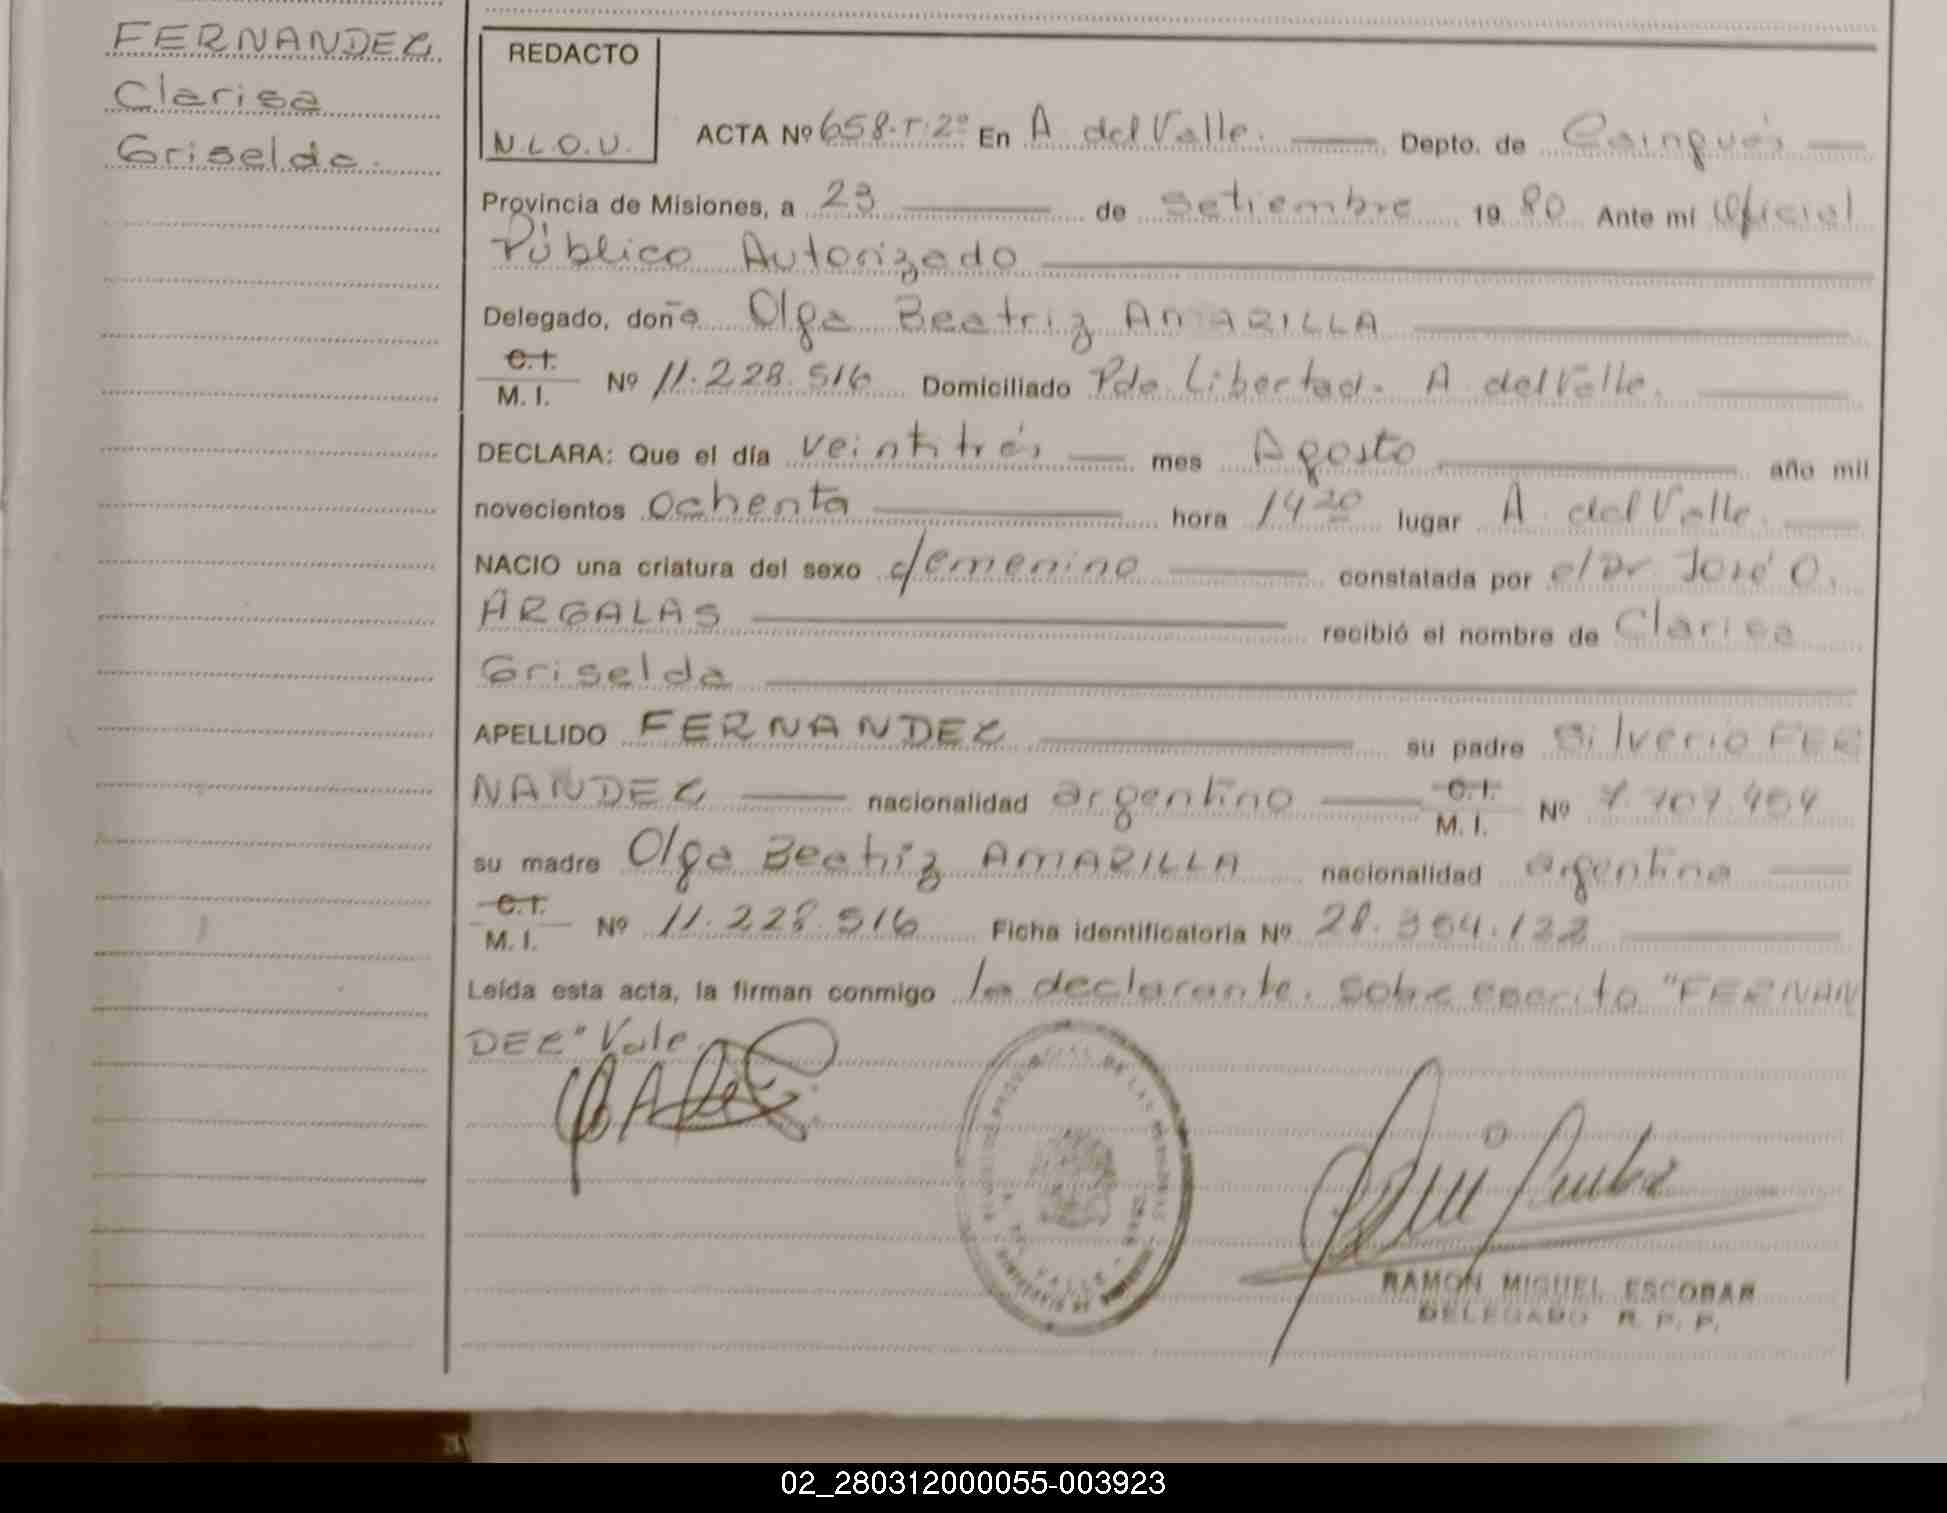 FERNANDEZ
Clarisa
Griselda.
REDACTO
N.L.O.U.
ACTA Nº 658.T.2º En A del Valle. Depto. de Cainguás
Provincia de Misiones, a 23 de setiembre 19 80 Ante mí Oficial
Público Autorizado
Delegado, doña Olga Beatriz AMARILLA
C.I.
M. I. Nº 11.228.516 Domiciliado Pdo. Libertad. A del Valle.
DECLARA: Que el día veintitrés mes Agosto año mil
novecientos ochenta hora 14 20 lugar A. del Valle.
NACIO una criatura del sexo femenino constatada por el Dr José O.
ARGALAS recibió el nombre de Clarisa
Griselda
APELLIDO FERNANDEZ su padre Silverio FER
NANDEZ nacionalidad argentino C.I. M. I. Nº
su madre Olga Beatriz AMARILLA nacionalidad argentina
C.I.
M. I. Nº 11.228.516 Ficha identificatoria Nº 28.354.122
Leída esta acta, la firman conmigo la declarante. sobre escrito "FERNAN
DEZ" Vale.
RAMON MIGUEL ESCOBAR
DELEGADO R. P. P.
02_280312000055-003923